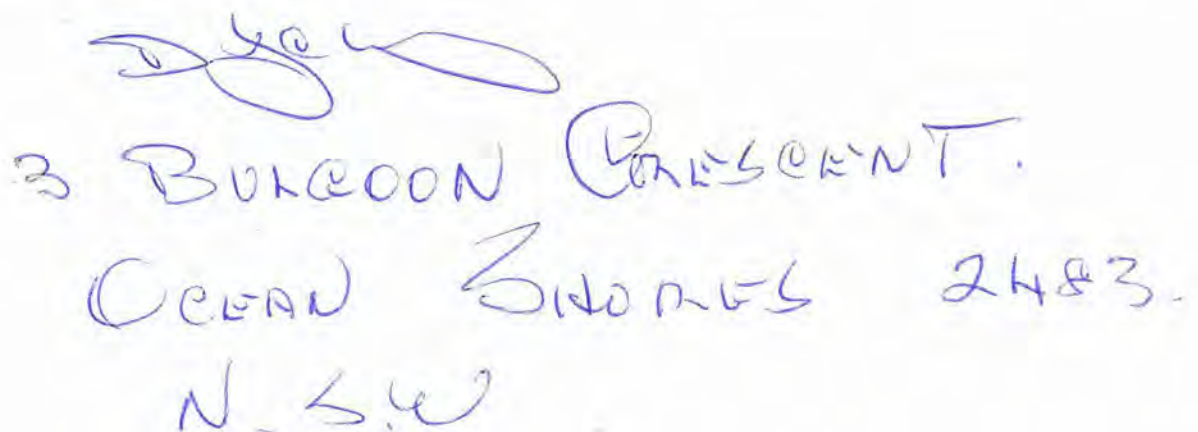 3 BULGOON CRESCENT.
OCEAN SHORES 2483.
N.S.W